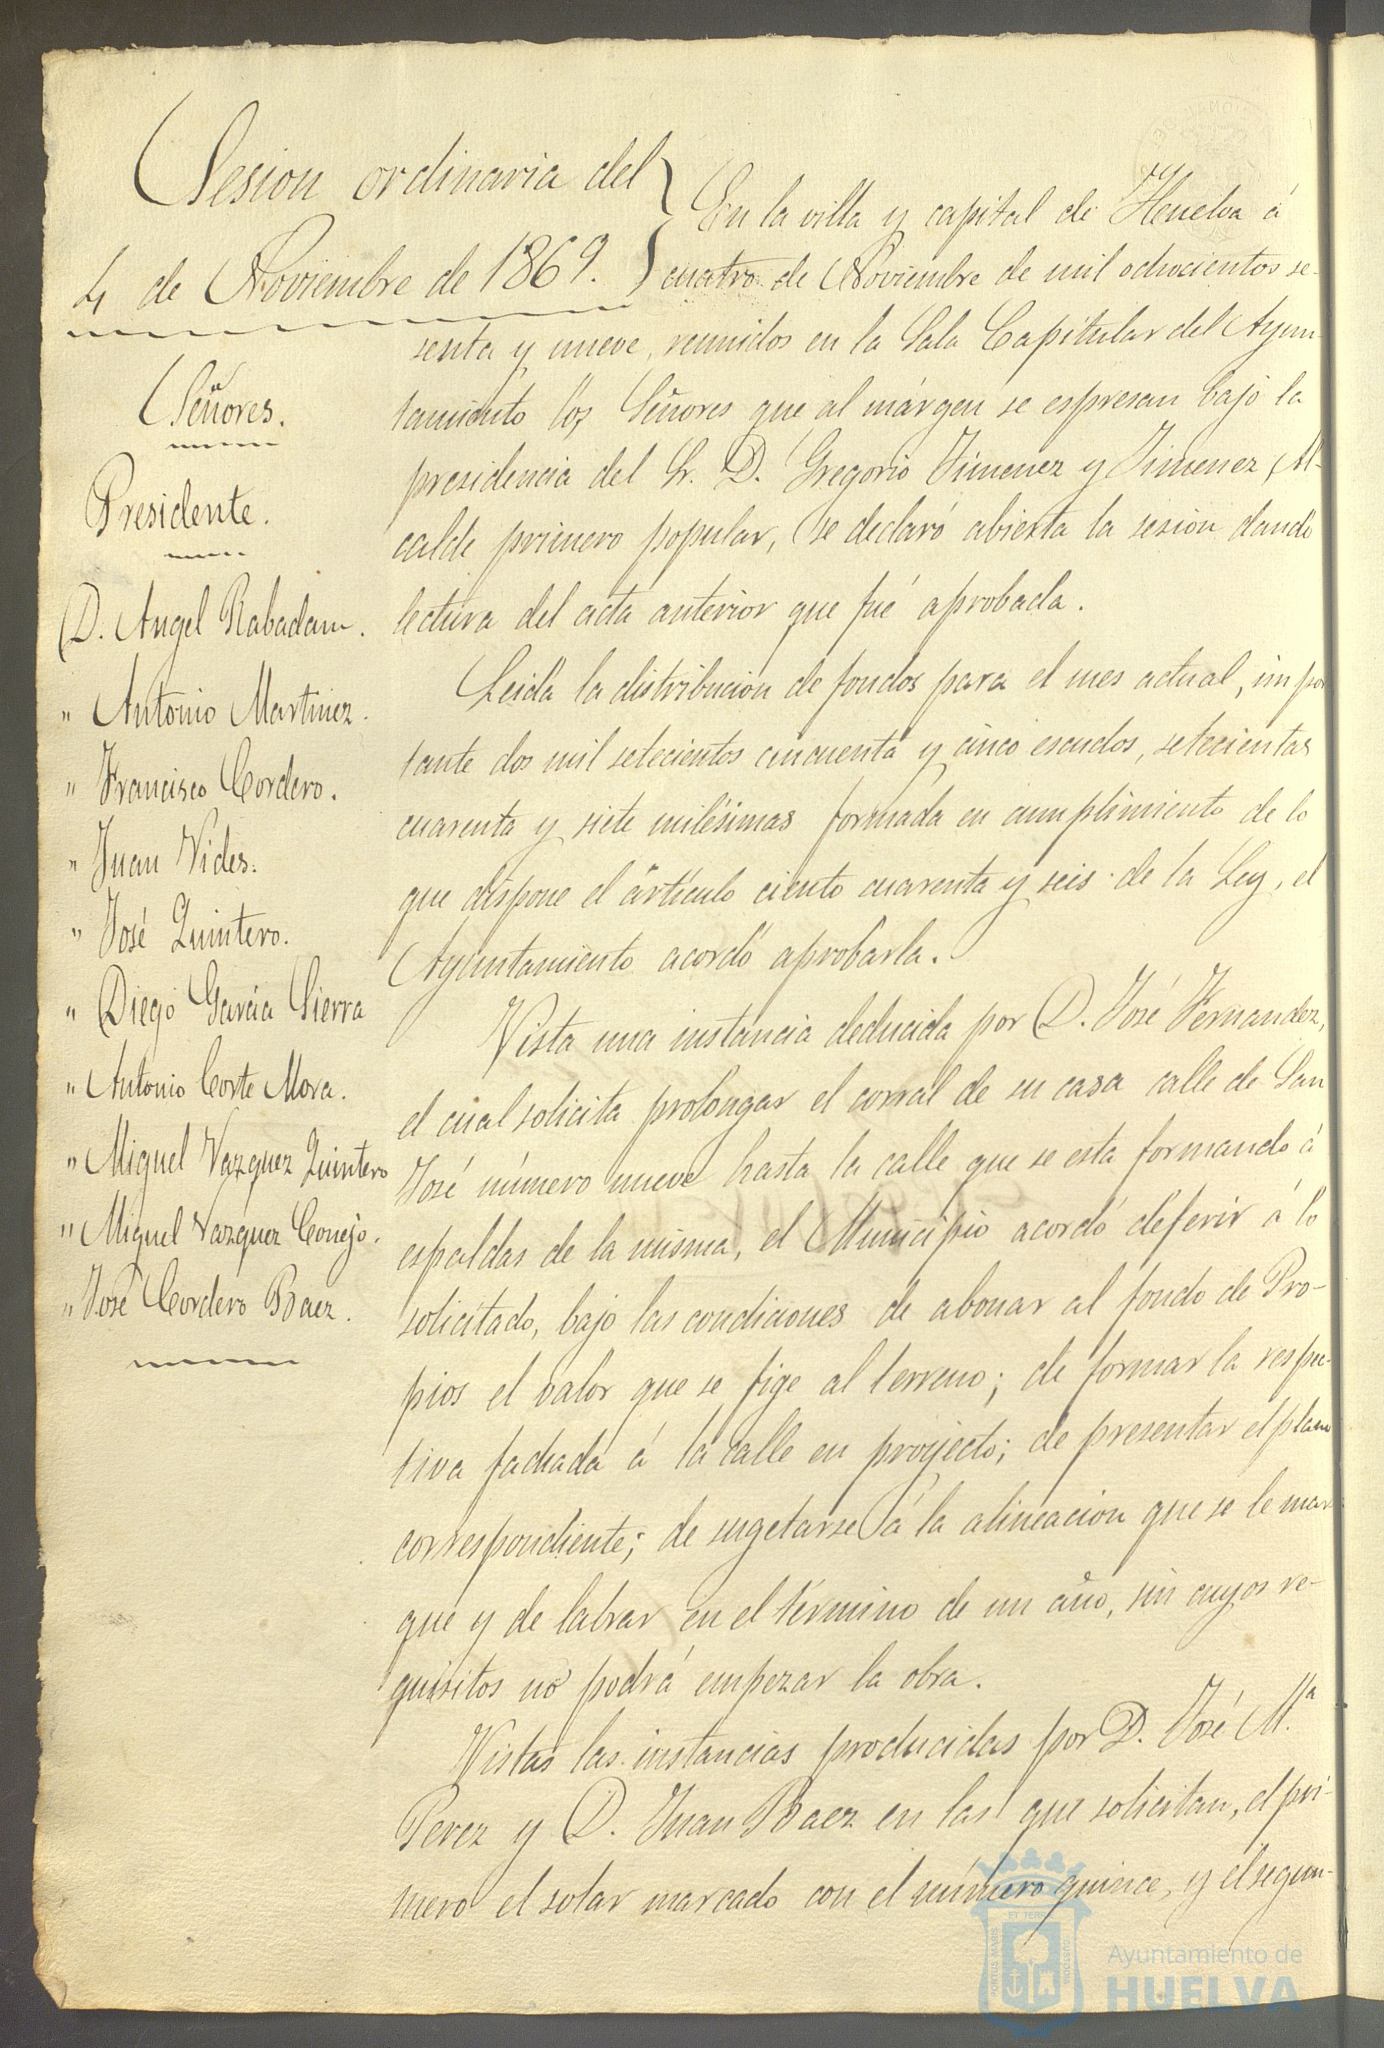 Sesion ordinaria del
4 de Noviembre de 1869.
Señores.
Presidente.
D. Angel Rabadan.
" Antonio Martinez.
" Francisco Cordero.
" Juan Vides.
" José Quintero.
" Diego Garcia Sierra
" Antonio Corte Mora.
" Miguel Vazquez Quintero
" Miguel Vazquez Conejo.
" José Cordero Baez.
En la villa y capital de Huelva á
cuatro de Noviembre de mil ochocientos se-
senta y nueve, reunidos en la Sala Capitular del Ayun-
tamiento los Señores que al márgen se espresan bajo la
presidencia del Sr. D. Gregorio Jimenez y Jimenez, Al-
calde primero popular, se declaró abierta la sesion dando
lectura del acta anterior que fué aprobada.
Leida la distribucion de fondos para el mes actual, impor
tante dos mil setecientos cincuenta y cinco escudos, setecientas
cuarenta y siete milésimas formada en cumplimiento de lo
que dispone el artículo ciento cuarenta y seis de la Ley, el
Ayuntamiento acordó aprobarla.
Vista una instancia deducida por D. José Fernandez,
el cual solicita prolongar el corral de su casa calle de San
José número nueve hasta la calle que se esta formando á
espaldas de la misma, el Municipio acordó deferir á lo
solicitado, bajo las condiciones de abonar al fondo de Pro-
pios el valor que se fige al terreno; de formar la respec-
tiva fachada á la calle en proyecto; de presentar el plano
correspondiente; de sugetarse á la alineacion que se le mar-
que y de labrar en el término de un año, sin cuyos re-
quisitos no podrá empezar la obra.
Vistas las instancias producidas por D. José Mª
Perez y D. Juan Baez en las que solicitan, el pri-
mero el solar marcado con el número quince, y el segun-
Ayuntamiento de
HUELVA